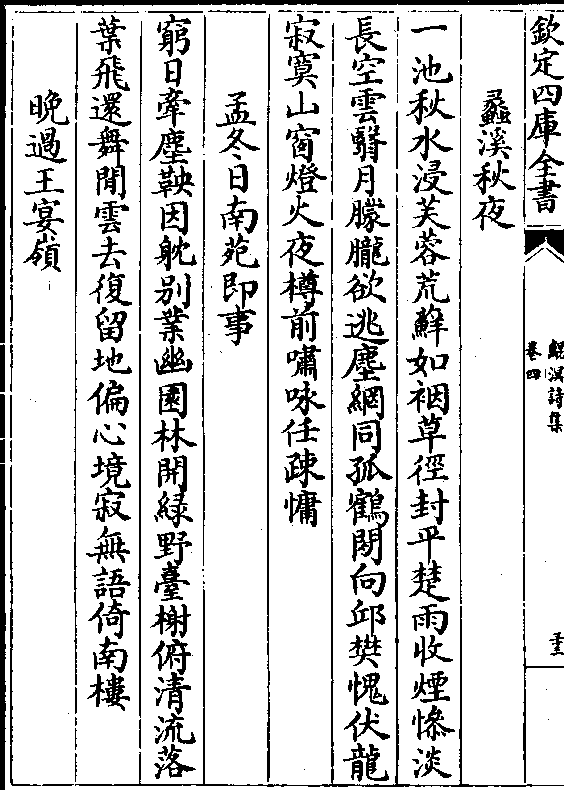 欽定四庫全書
鯤溟詩集
卷四
蠡溪秋夜
一池秋水浸芙蓉荒蘚如裀草徑封平楚雨收煙慘淡
長空雲翳月朦朧欲逃塵網同孤鶴閉向邱樊愧伏龍
寂寞山窗燈火夜樽前嘯咏任踈慵
孟冬日南苑即事
窮日牽塵鞅因躭别業幽園林開緑野臺榭俯清流落
葉飛還舞閒雲去復留地偏心境寂無語倚南樓
晚過王宴嶺